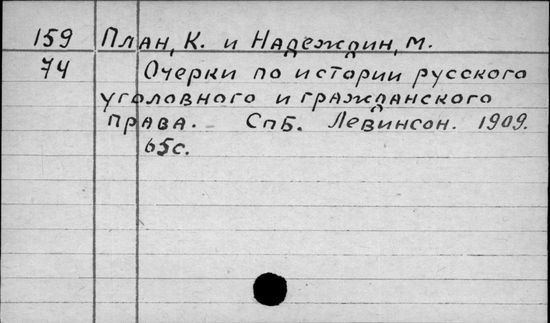 159 План, К. и Надеждин, М.
74 Очерки по истории русского
уголовного и гражданского
права. – СпБ. Левинсон. 1909.
65с.